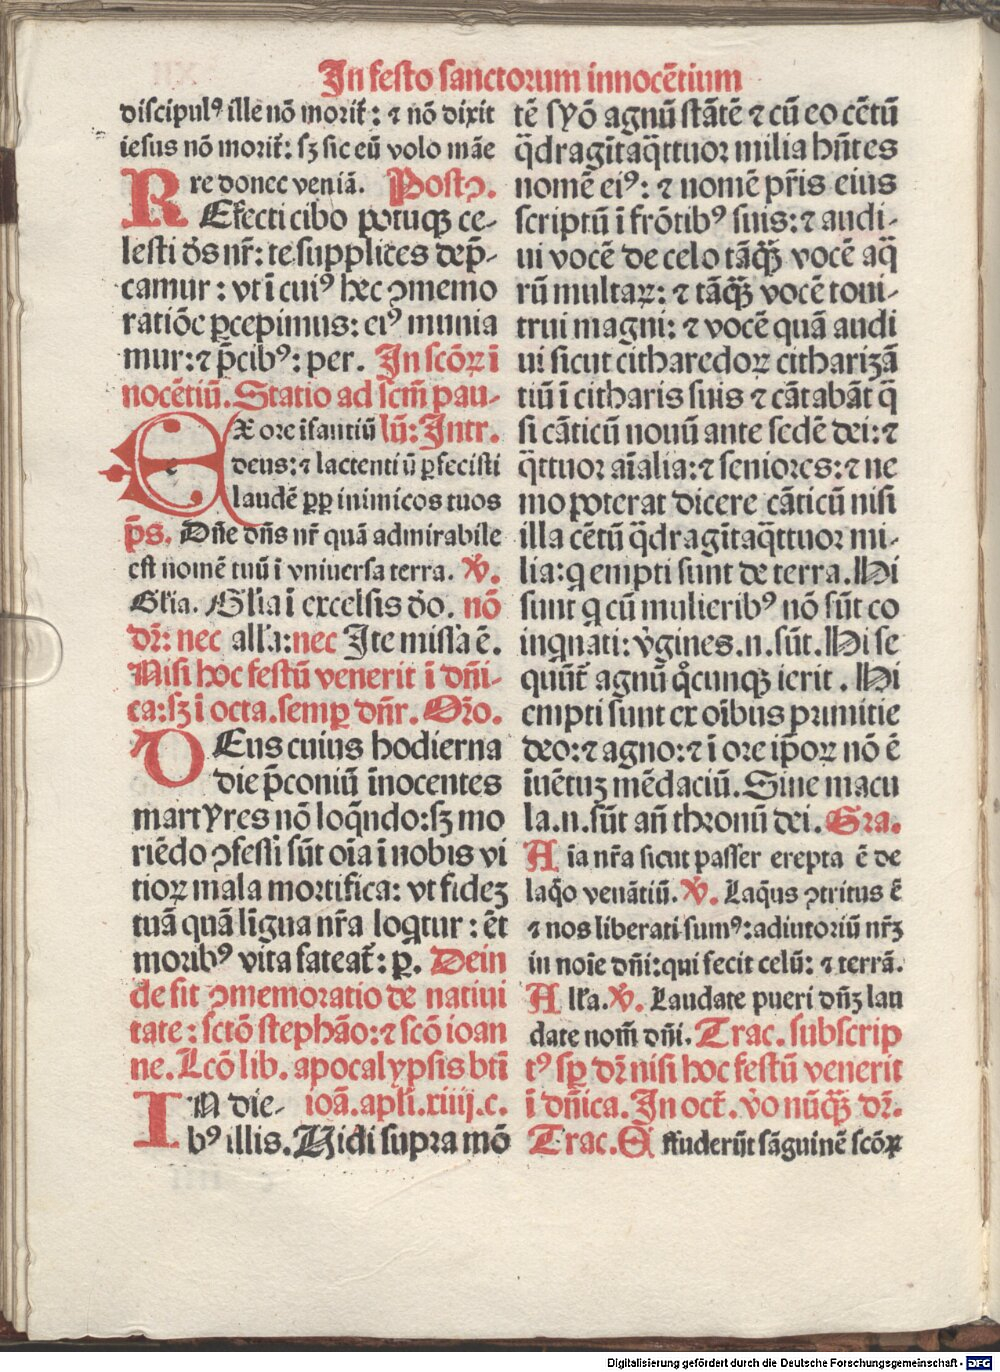 In festo sanctorum innocẽtium
discipulꝰ ille nõ morit̃: ⁊ nõ dixit
iesus nõ morit̃: sꝫ sic eũ volo mãe
re donec veniã. Postↄ̃.
REfecti cibo potuqꝫ ce-
lesti ds̃ nr̃: te supplices dep̃-
camur: vt ĩ cuiꝰ hec ↄmemo
ratiõe ꝑcepimus: eiꝰ munia
mur: ⁊ p̃cibꝰ: per. In scõꝝ ĩ
nocẽtiũ. Statio ad scm̃ pau-
EX ore ĩfantiũ lũ: Intr.
deus: ⁊ lactentiũ ꝑfecisti
laudẽ ꝓꝑ inimicos tuos
p̃s. Dñe dñs nr̃ quã admirabile
est nomẽ tuũ ĩ vniuersa terra. ℣.
Glĩa. Glĩa ĩ excelsis do. nõ
dr̃: nec all'a: nec Ite missa ẽ.
Nisi hoc festũ venerit ĩ dñi-
ca: sꝫ ĩ octa. semꝑ dñr. Oro.
DEus cuius hodierna
die p̃coniũ ĩnocentes
martyres nõ loq̃ndo: sꝫ mo
riẽdo ↄfessi sũt oĩa ĩ nobis vi
tioꝝ mala mortifica: vt fideꝫ
tuã quã lĩgua nr̃a loqtur: ẽt
moribꝰ vita fateat̃: ꝑ. Dein
de fit ↄmemoratio de natiui
tate: sctõ stephão: ⁊ scõ ioan
ne. Lcõ lib. apocalypsis btĩ
IN die- ioã. apl̃i. xiiij. c.
bꝰ illis. Vidi supra mõ
tẽ syõ agnũ stãtẽ ⁊ cũ eo cẽtũ
q̃dragĩtaq̃ttuor milia hñtes
nomẽ eiꝰ: ⁊ nomẽ pr̃is eius
scriptũ ĩ frõtibꝰ suis: ⁊ audi-
ui vocẽ de celo tãq̃ꝫ vocẽ aq̃
rũ multaꝝ: ⁊ tãq̃ꝫ vocẽ toni-
trui magni: ⁊ vocẽ quã audi
ui sicut citharedoꝝ citharizã
tiũ ĩ citharis suis ⁊ cãtabãt q̃
si cãticũ nouũ ante sedẽ dei: ⁊
q̃ttuor aĩalia: ⁊ seniores: ⁊ ne
mo poterat dicere cãticũ nisi
illa cẽtũ q̃dragĩtaq̃ttuor mi-
lia: q empti sunt de terra. Hi
sunt q cũ mulieribꝰ nõ sũt co
inqnati: v̓gines. n. sũt. Hi se
qunt̃ agnũ q̊cunqꝫ ierit. Hi
empti sunt ex oĩbus primitie
deo: ⁊ agno: ⁊ ĩ ore ip̃oꝝ nõ ẽ
ĩuẽtuꝫ mẽdaciũ. Sine macu
la. n. sũt añ thronũ dei. Gra.
Aĩa nr̃a sicut passer erepta ẽ de
laq̃o venãtiũ. ℣. Laq̃us ↄtritus ẽ
⁊ nos liberati sumꝰ: adiutoriũ nr̃ꝫ
in noĩe dñi: qui fecit celũ: ⁊ terrã.
Alľa. ℣. Laudate pueri dñꝫ lau
date nom̃ dñi. Trac. subscrip
tꝰ sꝑ dr̃ nisi hoc festũ venerit
ĩ dñica. In oct̃. v̓o nũq̃ꝫ dr̃.
Trac. Effuderũt sãguinẽ scõꝝ
Digitalisierung gefördert durch die Deutsche Forschungsgemeinschaft - DFG